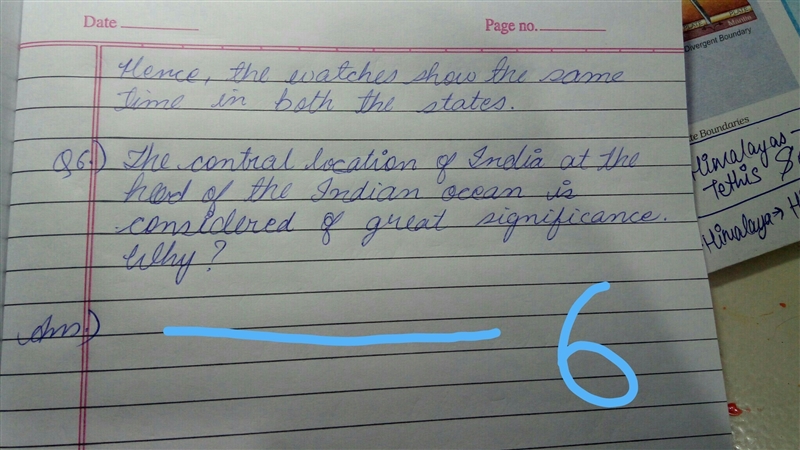 Date
Page no.
Hence, the watches show the same
time in both the states.
Q6.) The contral location of India at the
head of the Indian ocean is
considered of great significance.
Why?
Ans.)
6
Divergent Boundary
te Boundaries
Himalayas -
Tethis
Himalaya → H